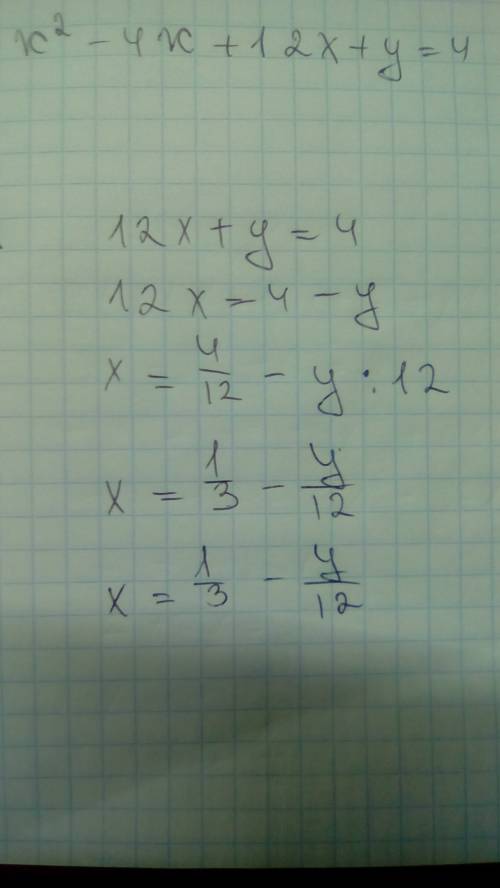 x² - 4x + 12x + y = 4
12x + y = 4
12x = 4 - y
x = 4/12 - y : 12
x = 1/3 - y/12
x = 1/3 - y/12